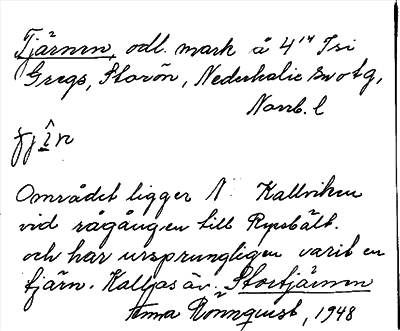 Tjärnen, odl. mark å 4
Gregs, Storön, Nederkalix sn o tg,
Norrb. l
Området ligger N. Kallviken
vid rågången till Rysbält.
och har ursprungligen varit en
tjärn. Kallas äv. Stortjärnen
Anna Rönnquist, 1948